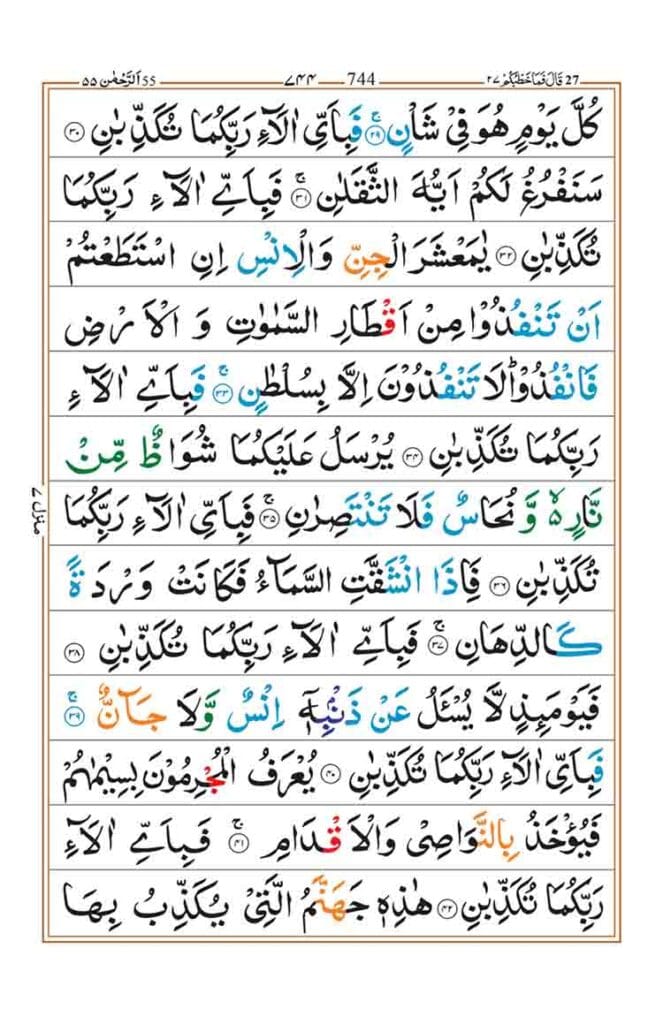 27 قَالَ فَمَا خَطْبُكُمْ ٢٧ 744 ٧٤٤ 55 اَلرَّحْمٰن ٥٥
كُلَّ يَوْمٍ هُوَ فِيْ شَاْنٍ ۚ ﴿۲۹﴾ فَبِاَىِّ اٰلَآءِ رَبِّكُمَا تُكَذِّبٰنِ ﴿۳۰﴾
سَنَفْرُغُ لَكُمْ اَيُّهَ الثَّقَلٰنِ ۚ ﴿۳۱﴾ فَبِاَىِّ اٰلَآءِ رَبِّكُمَا
تُكَذِّبٰنِ ﴿۳۲﴾ يٰمَعْشَرَ الْجِنِّ وَالْاِنْسِ اِنِ اسْتَطَعْتُمْ
اَنْ تَنْفُذُوْا مِنْ اَقْطَارِ السَّمٰوٰتِ وَ الْاَرْضِ
فَانْفُذُوْا ؕ لَا تَنْفُذُوْنَ اِلَّا بِسُلْطٰنٍ ۚ ﴿۳۳﴾ فَبِاَىِّ اٰلَآءِ
رَبِّكُمَا تُكَذِّبٰنِ ﴿۳۴﴾ يُرْسَلُ عَلَيْكُمَا شُوَاظٌ مِّنْ
نَّارٍ ۙ۬ وَّ نُحَاسٌ فَلَا تَنْتَصِرٰنِ ۚ ﴿۳۵﴾ فَبِاَىِّ اٰلَآءِ رَبِّكُمَا
تُكَذِّبٰنِ ﴿۳۶﴾ فَاِذَا انْشَقَّتِ السَّمَآءُ فَكَانَتْ وَرْدَةً
كَالدِّهَانِ ۚ ﴿۳۷﴾ فَبِاَىِّ اٰلَآءِ رَبِّكُمَا تُكَذِّبٰنِ ﴿۳۸﴾
فَيَوْمَئِذٍ لَّا يُسْـَٔلُ عَنْ ذَنْۢبِهٖۤ اِنْسٌ وَّلَا جَآنٌّ ۚ ﴿۳۹﴾
فَبِاَىِّ اٰلَآءِ رَبِّكُمَا تُكَذِّبٰنِ ﴿۴۰﴾ يُعْرَفُ الْمُجْرِمُوْنَ بِسِيْمٰهُمْ
فَيُؤْخَذُ بِالنَّوَاصِىْ وَالْاَقْدَامِ ۚ ﴿۴۱﴾ فَبِاَىِّ اٰلَآءِ
رَبِّكُمَا تُكَذِّبٰنِ ﴿۴۲﴾ هٰذِهٖ جَهَنَّمُ الَّتِىْ يُكَذِّبُ بِهَا
منزل ٧